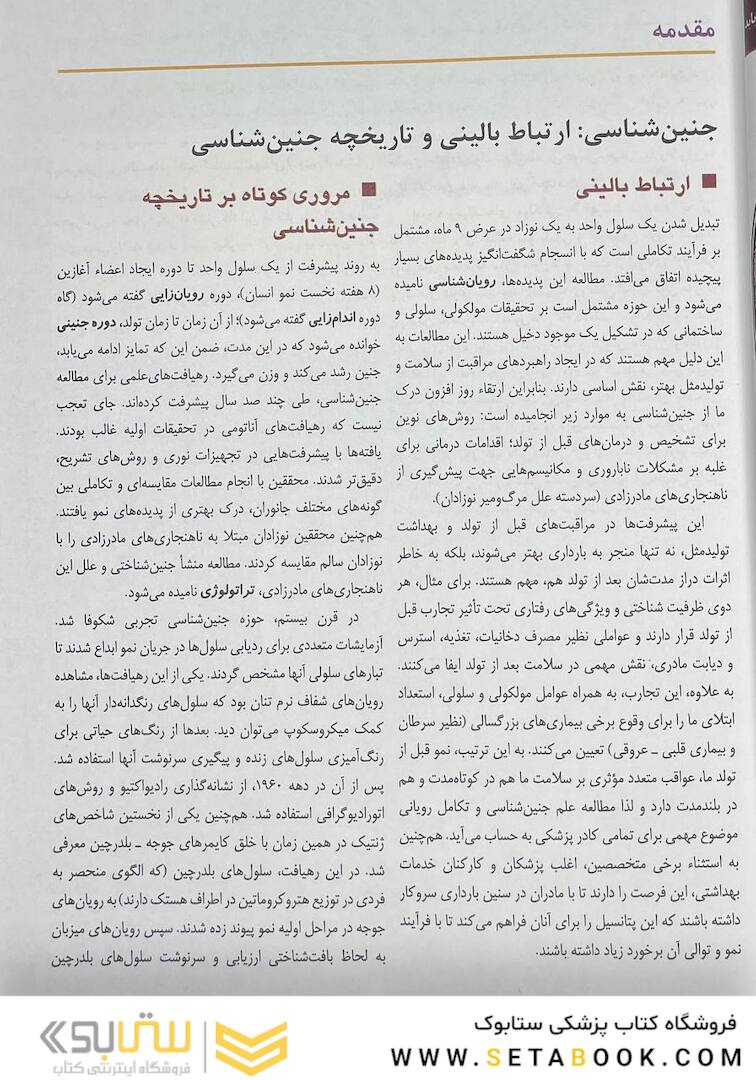 مقدمه
جنین‌شناسی: ارتباط بالینی و تاریخچه جنین‌شناسی
ارتباط بالینی
تبدیل شدن یک سلول واحد به یک نوزاد در عرض ۹ ماه، مشتمل
بر فرآیند تکاملی است که با انسجام شگفت‌انگیز پدیده‌های بسیار
پیچیده اتفاق می‌افتد. مطالعه این پدیده‌ها، رویان‌شناسی نامیده
می‌شود و این حوزه مشتمل است بر تحقیقات مولکولی، سلولی و
ساختمانی که در تشکیل یک موجود دخیل هستند. این مطالعات به
این دلیل مهم هستند که در ایجاد راهبردهای مراقبت از سلامت و
تولیدمثل بهتر، نقش اساسی دارند. بنابراین ارتقاء روز افزون درک
ما از جنین‌شناسی به موارد زیر انجامیده است: روش‌های نوین
برای تشخیص و درمان‌های قبل از تولد؛ اقدامات درمانی برای
غلبه بر مشکلات ناباروری و مکانیسم‌هایی جهت پیش‌گیری از
ناهنجاری‌های مادرزادی (سردسته علل مرگ‌ومیر نوزادان).
این پیشرفت‌ها در مراقبت‌های قبل از تولد و بهداشت
تولیدمثل، نه تنها منجر به بارداری بهتر می‌شوند، بلکه به خاطر
اثرات دراز مدت‌شان بعد از تولد هم، مهم هستند. برای مثال، هر
دوی ظرفیت شناختی و ویژگی‌های رفتاری تحت تأثیر تجارب قبل
از تولد قرار دارند و عواملی نظیر مصرف دخانیات، تغذیه، استرس
و دیابت مادری، نقش مهمی در سلامت بعد از تولد ایفا می‌کنند.
به علاوه، این تجارب، به همراه عوامل مولکولی و سلولی، استعداد
ابتلای ما را برای وقوع برخی بیماری‌های بزرگسالی (نظیر سرطان
و بیماری قلبی ـ عروقی) تعیین می‌کنند. به این ترتیب، نمو قبل از
تولد ما، عواقب متعدد مؤثری بر سلامت ما هم در کوتاه‌مدت و هم
در بلندمدت دارد و لذا مطالعه علم جنین‌شناسی و تکامل رویانی
موضوع مهمی برای تمامی کادر پزشکی به حساب می‌آید. هم‌چنین
به استثناء برخی متخصصین، اغلب پزشکان و کارکنان خدمات
بهداشتی، این فرصت را دارند تا با مادران در سنین بارداری سروکار
داشته باشند که این پتانسیل را برای آنان فراهم می‌کند تا با فرآیند
نمو و توالی آن برخورد زیاد داشته باشند.
مروری کوتاه بر تاریخچه
جنین‌شناسی
به روند پیشرفت از یک سلول واحد تا دوره ایجاد اعضاء آغازین
(۸ هفته نخست نمو انسان)، دوره رویان‌زایی گفته می‌شود (گاه
دوره اندام‌زایی گفته می‌شود)؛ از آن زمان تا زمان تولد، دوره جنینی
خوانده می‌شود که در این مدت، ضمن این که تمایز ادامه می‌یابد،
جنین رشد می‌کند و وزن می‌گیرد. رهیافت‌های‌علمی برای مطالعه
جنین‌شناسی، طی چند صد سال پیشرفت کرده‌اند. جای تعجب
نیست که رهیافت‌های آناتومی در تحقیقات اولیه غالب بودند.
یافته‌ها با پیشرفت‌هایی در تجهیزات نوری و روش‌های تشریح،
دقیق‌تر شدند. محققین با انجام مطالعات مقایسه‌ای و تکاملی بین
گونه‌های مختلف جانوران، درک بهتری از پدیده‌های نمو یافتند.
هم‌چنین محققین نوزادان مبتلا به ناهنجاری‌های مادرزادی را با
نوزادان سالم مقایسه کردند. مطالعه منشأ جنین‌شناختی و علل این
ناهنجاری‌های مادرزادی، تراتولوژی نامیده می‌شود.
در قرن بیستم، حوزه جنین‌شناسی تجربی شکوفا شد.
آزمایشات متعددی برای ردیابی سلول‌ها در جریان نمو ابداع شدند تا
تبارهای سلولی آنها مشخص گردند. یکی از این رهیافت‌ها، مشاهده
رویان‌های شفاف نرم تنان بود که سلول‌های رنگدانه‌دار آنها را به
کمک میکروسکوپ می‌توان دید. بعدها از رنگ‌های حیاتی برای
رنگ‌آمیزی سلول‌های زنده و پیگیری سرنوشت آنها استفاده شد.
پس از آن در دهه ۱۹۶۰، از نشانه‌گذاری رادیواکتیو و روش‌های
اتورادیوگرافی استفاده شد. هم‌چنین یکی از نخستین شاخص‌های
ژنتیک در همین زمان با خلق کایمرهای جوجه ـ بلدرچین معرفی
شد. در این رهیافت، سلول‌های بلدرچین (که الگوی منحصر به
فردی در توزیع هتروکروماتین در اطراف هستک دارند) به رویان‌های
جوجه در مراحل اولیه نمو پیوند زده شدند. سپس رویان‌های میزبان
به لحاظ بافت‌شناختی ارزیابی و سرنوشت سلول‌های بلدرچین
فروشگاه کتاب پزشکی ستابوک
WWW.SETABOOK.COM
ستابوک
فروشگاه اینترنتی کتاب